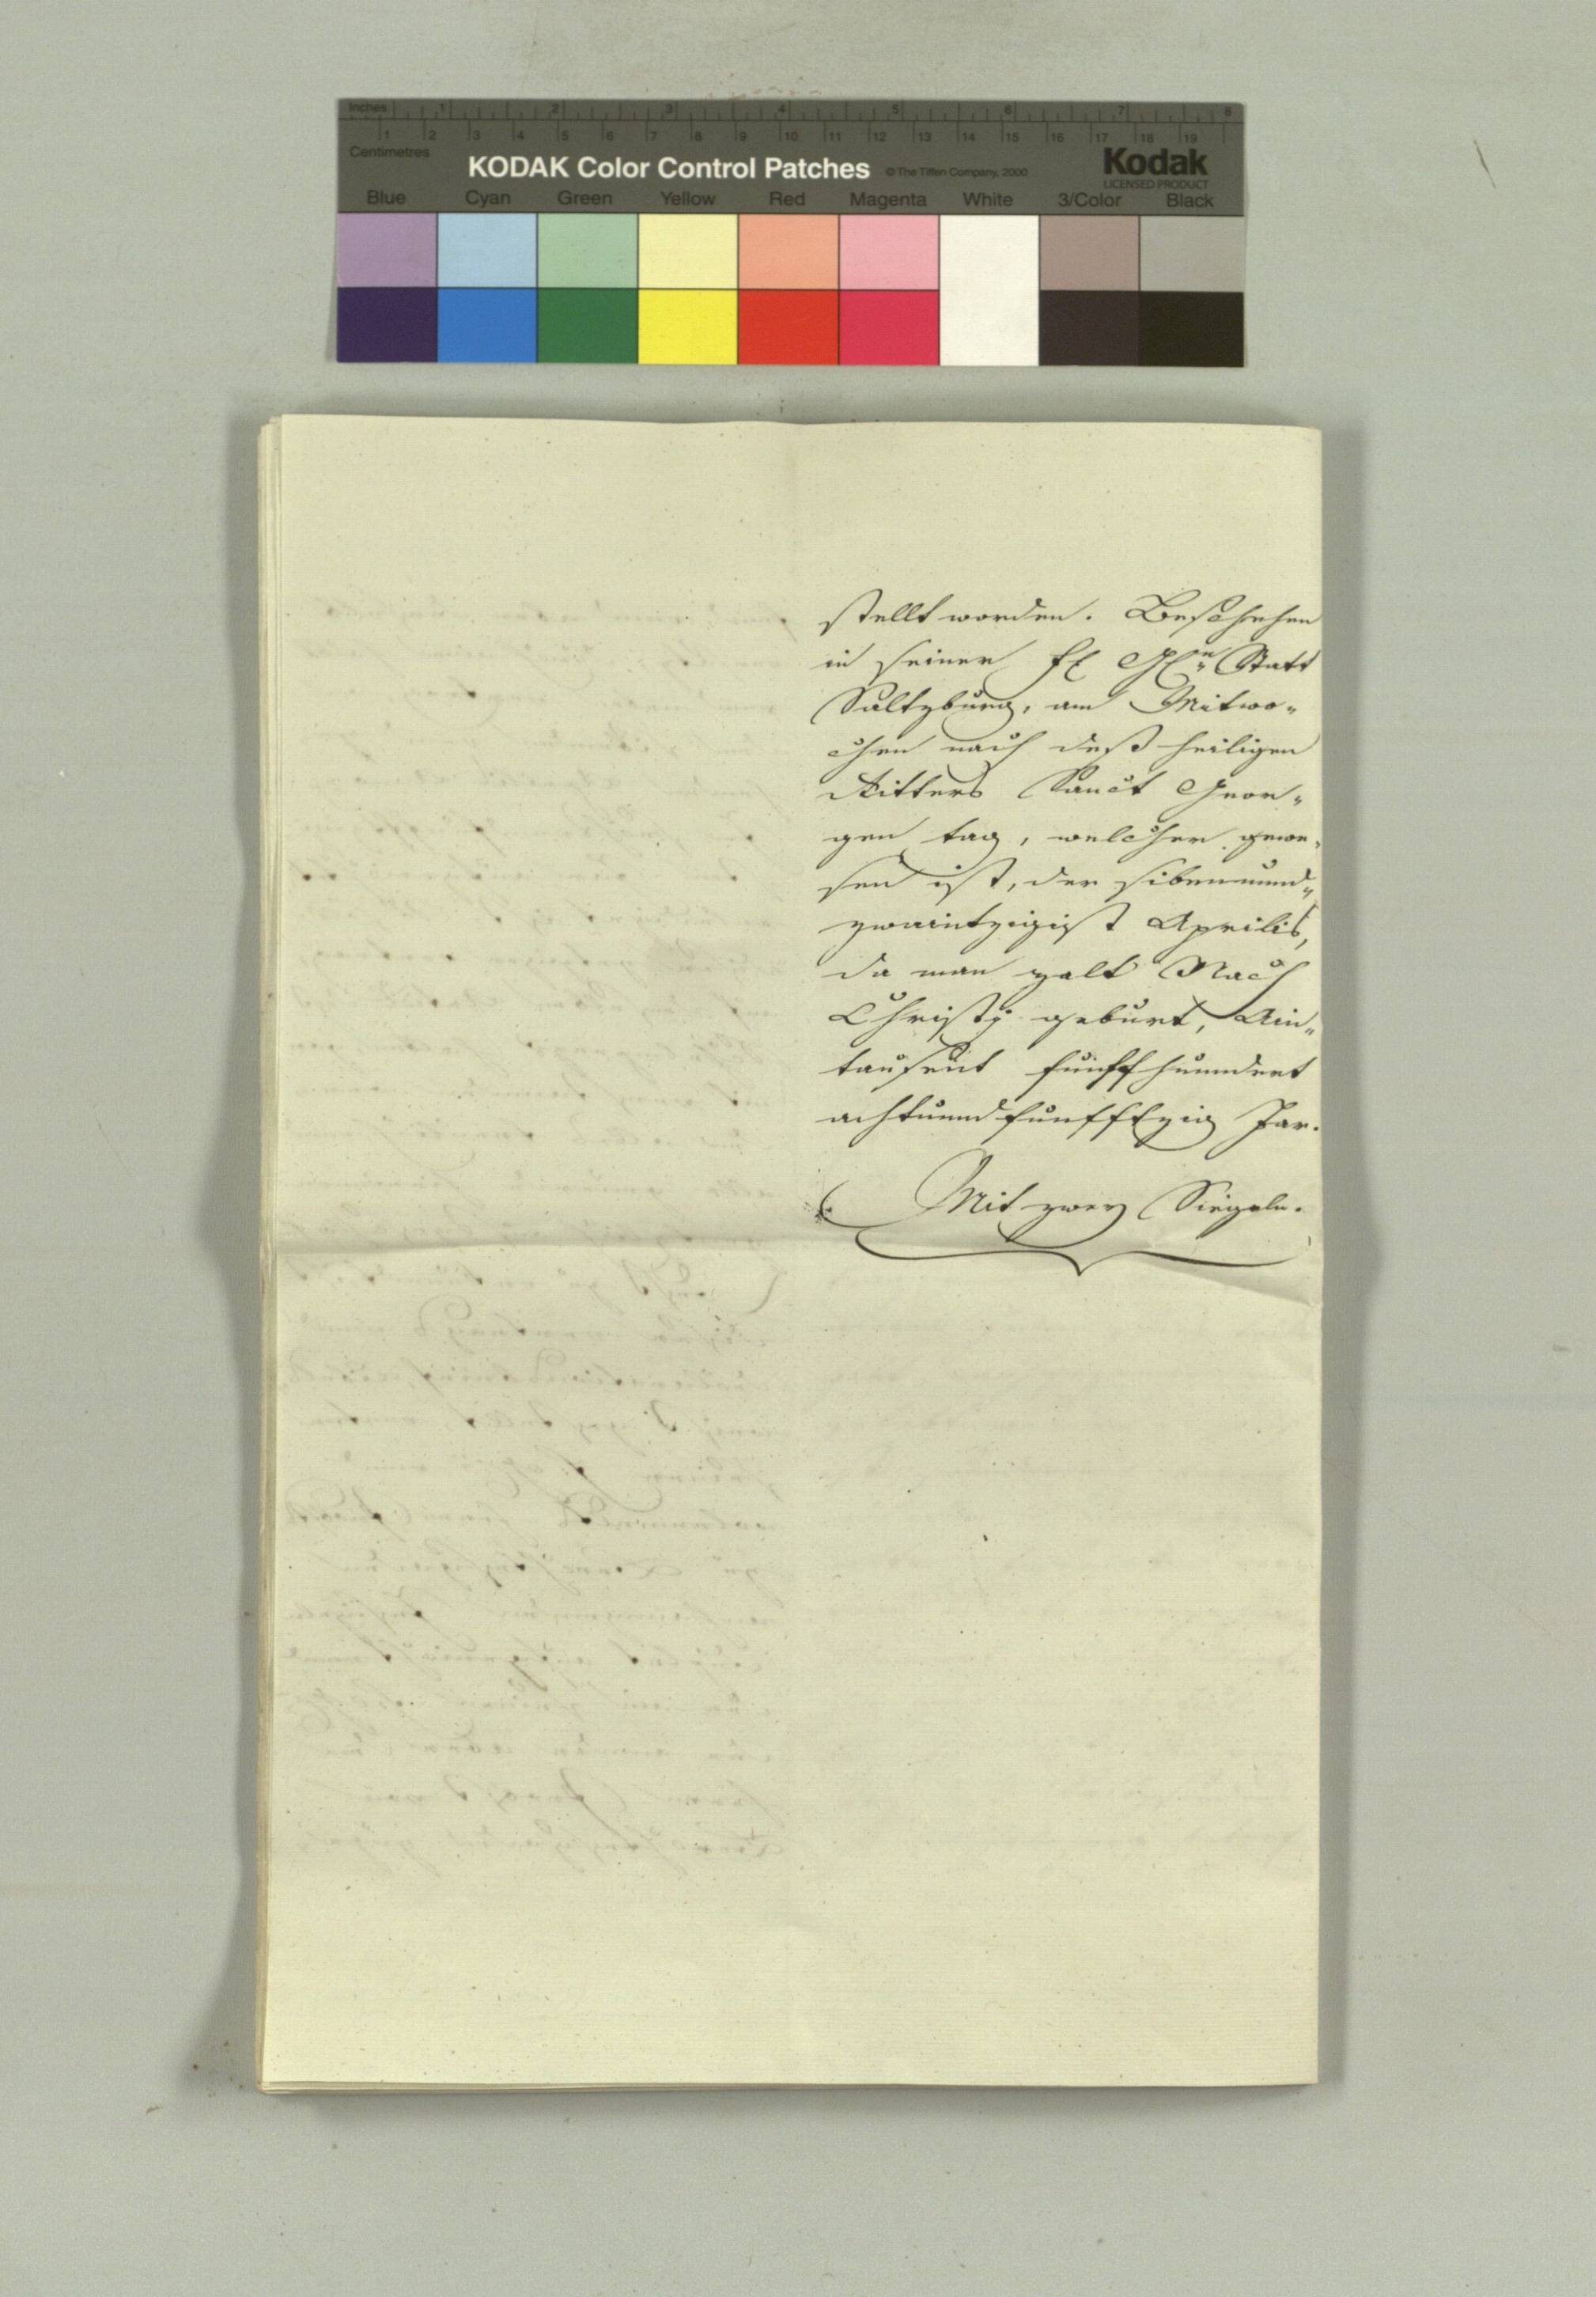 Inches 1 2 3 4 5 6 7 8
1 2 3 4 5 6 7 8 9 10 11 12 13 14 15 16 17 18 19
Centimetres
KODAK Color Control Patches © The Tiffen Company, 2000 Kodak
LICENSED PRODUCT
Blue Cyan Green Yellow Red Magenta White 3/Color Black
stellt worden. Beschehen
in seiner Statt
Saltzburg, am Mitwo„
chen nach deß heiligen
Ritters Sanct Geor„
gen tag, welcher gewe„
sen ist, der sibenund„
zwaintzigist Aprilis,
da man zalt Nach
Christÿ geburt, Ain„
tausent fünffhunndert
achtunndfunfftzig Jar.
Mit zweÿ Siegeln.